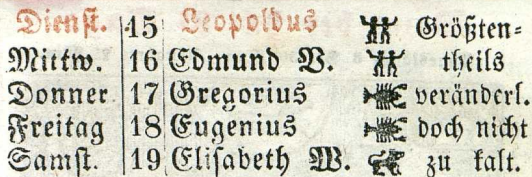 Dienst. 15 Leopoldus Größten-
Mittw. 16 Edmund B. theils
Donner 17 Gregorius veränderl.
Freitag 18 Eugenius doch nicht
Samst. 19 Elisabeth W. zu kalt.